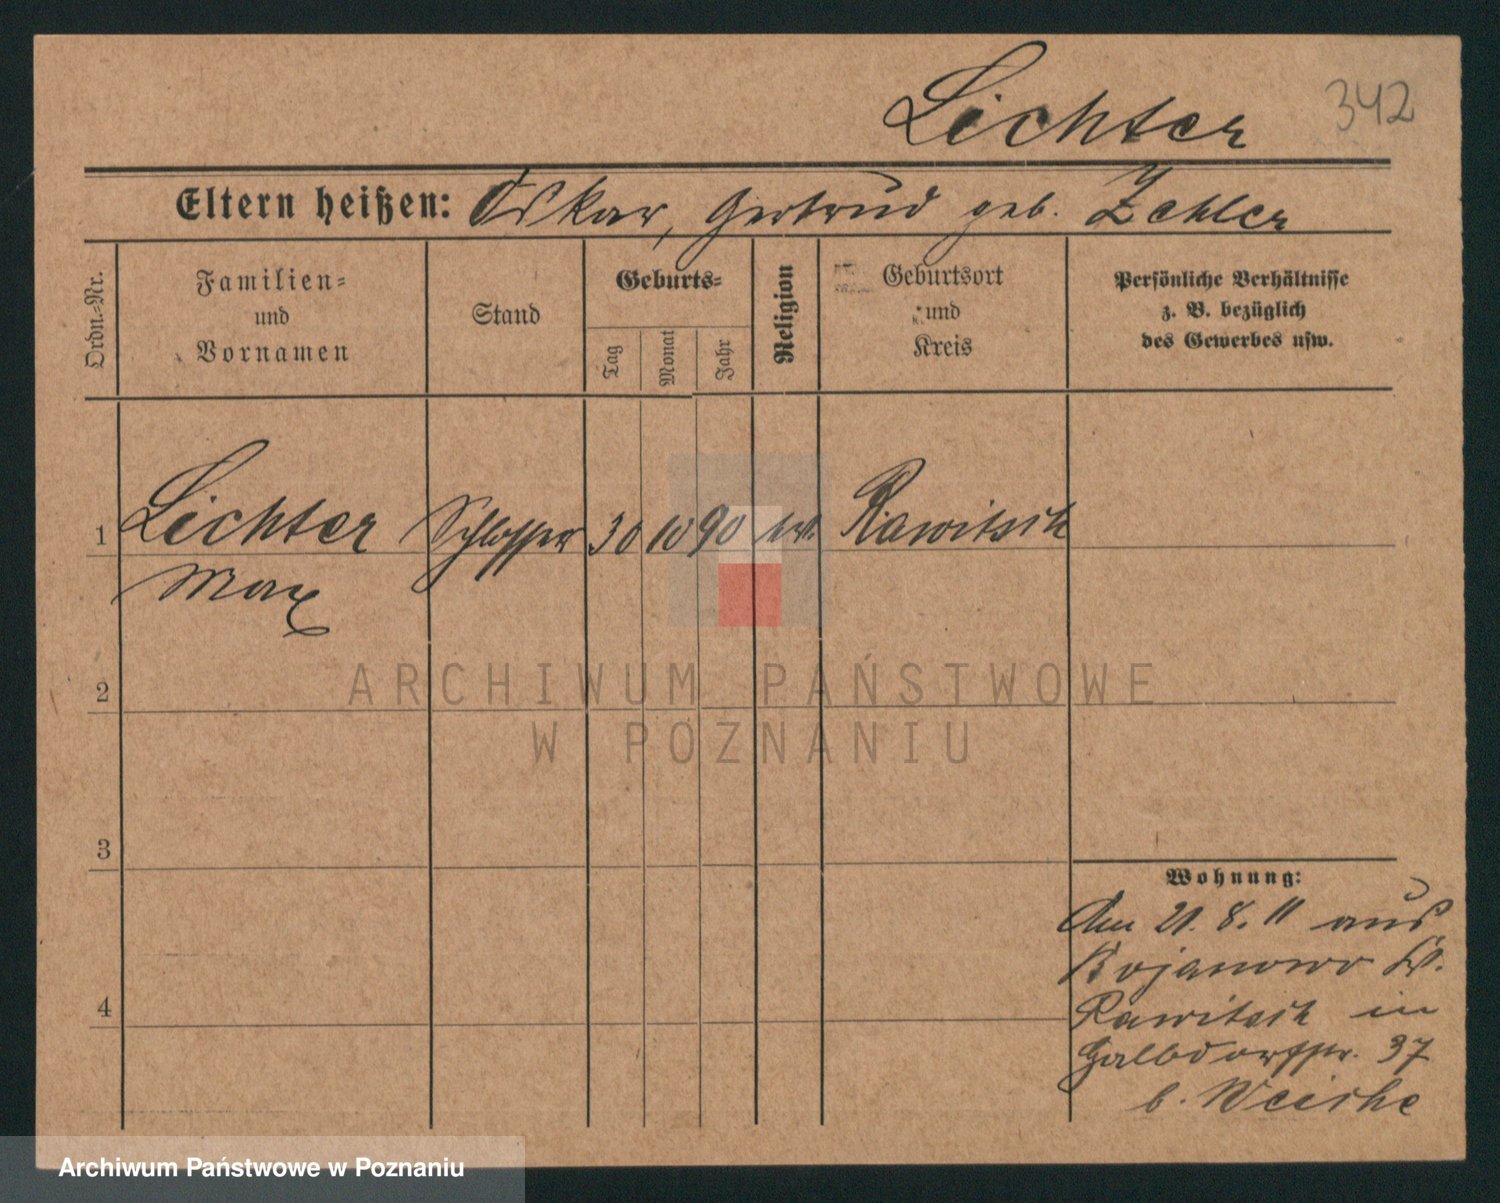 Lichter
342
Eltern heißen: Oskar, Gertrud geb. Zehler
Ordn.-Nr.
Familien-
und
Vornamen
Stand
Geburts-
Tag
Monat
Jahr
Religion
Geburtsort
und
Kreis
Persönliche Verhältnisse
z. B. bezüglich
des Gewerbes usw.
1
Lichter Schlosser 30 10 90 Rawitsch
Max
2
3
4
Wohnung:
Am 21. 8. 11 aus
Bojanowo Kr.
Rawitsch in
37
b. Weiske
ARCHIWUM PAŃSTWOWE
W POZNANIU
Archiwum Państwowe w Poznaniu